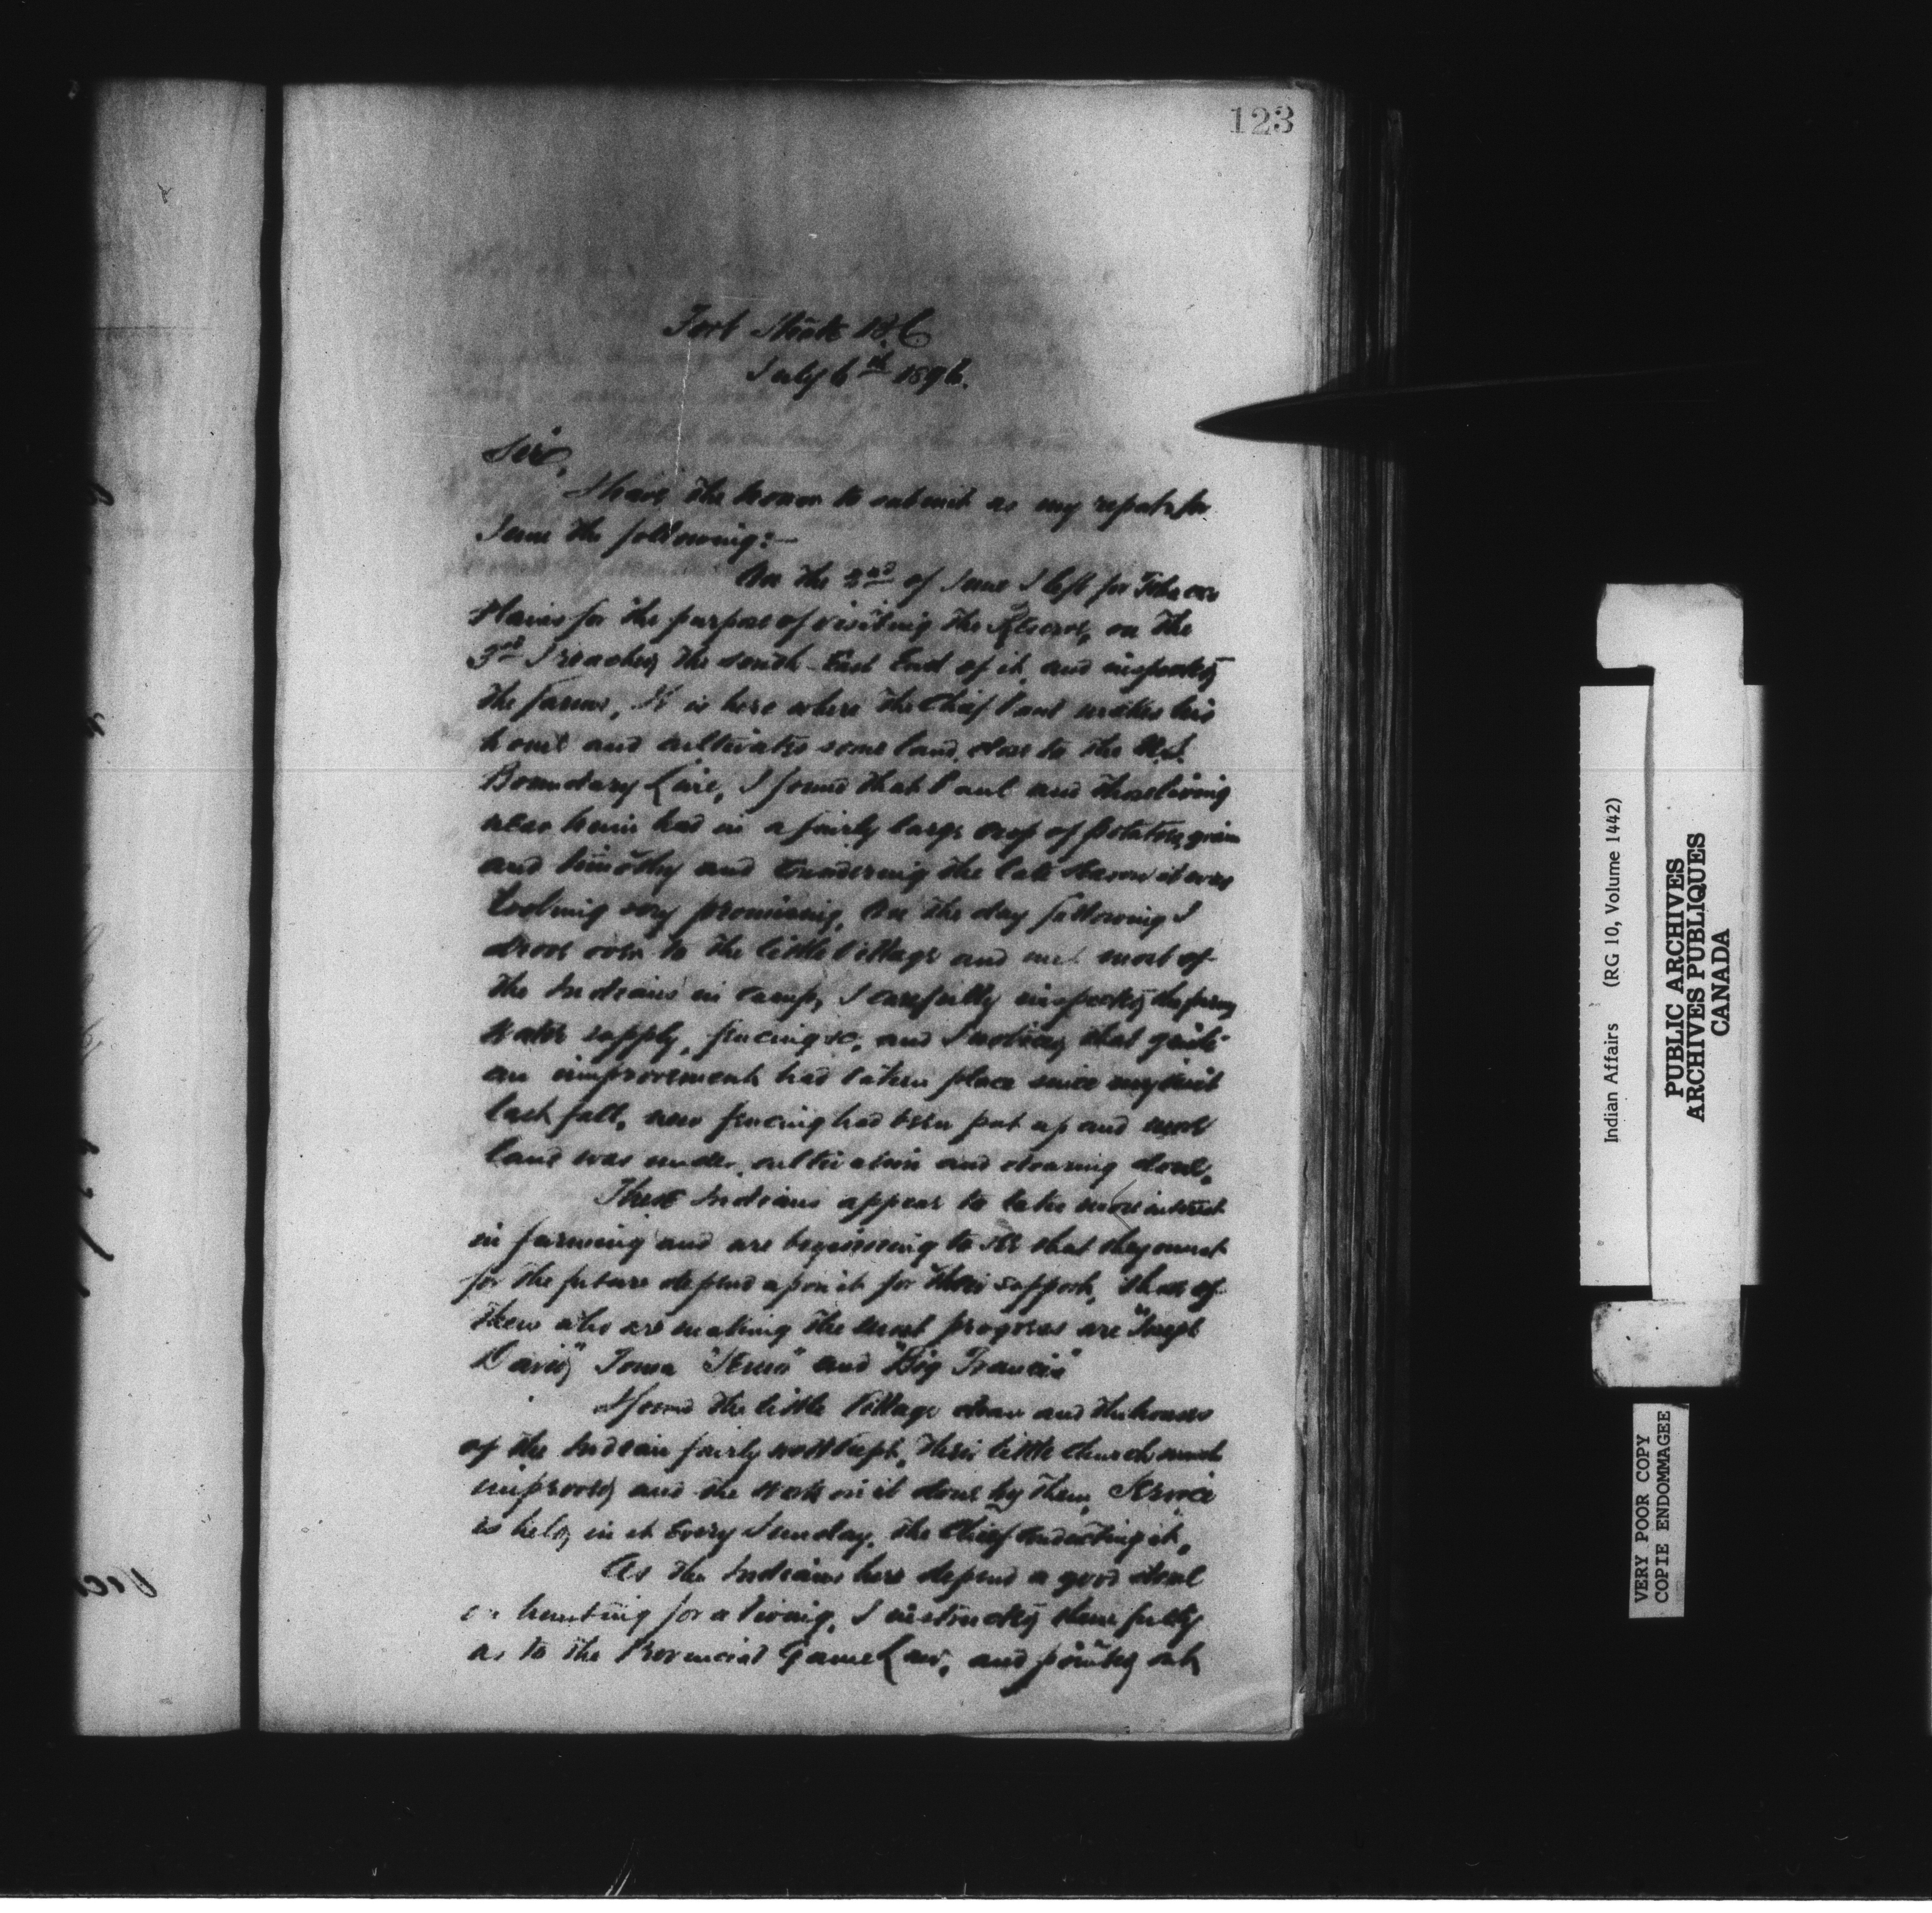 123
Fort Steele B.C
July 6th 1896.
Sir,
I have the honor to submit as my report for
June the following:—
On the 2nd of June I left for Tobacco
Plains for the purpose of visiting the Reserve, on the
3rd I reached the South-East End of it, and inspected
the farms, It is here where the Chief Paul makes his
home and cultivates some land, close to the U.S.
Boundary Line, I found that Paul and those living
near him had in a fairly large crop of potatoes, grain
and timothy and considering the late season it was
looking very promising, On the day following I
drove over to the little Village and met most of
the Indians in camp, I carefully inspected the farms,
water supply, fencing &c, and I noticed that quite
an improvement had taken place since my visit
last fall, new fencing had been put up and more
land was under cultivation and clearing done,
These Indians appear to take more interest
in farming and are beginning to see that they must
for the future depend upon it for their support, those of
them who are making the most progress are "Joseph
David" and "Big Francis"
I found the little Village clean and the houses
of the Indian fairly well kept, their little church much
improved and the work on it done by them, Service
is held in it every Sunday, the Chief conducting it,
As the Indians here depend a good deal
on hunting for a living, I instructed them fully
as to the Provincial Game Law, and pointed out
Indian Affairs (RG 10, Volume 1442)
PUBLIC ARCHIVES
ARCHIVES PUBLIQUES
CANADA
VERY POOR COPY
COPIE ENDOMMAGEE